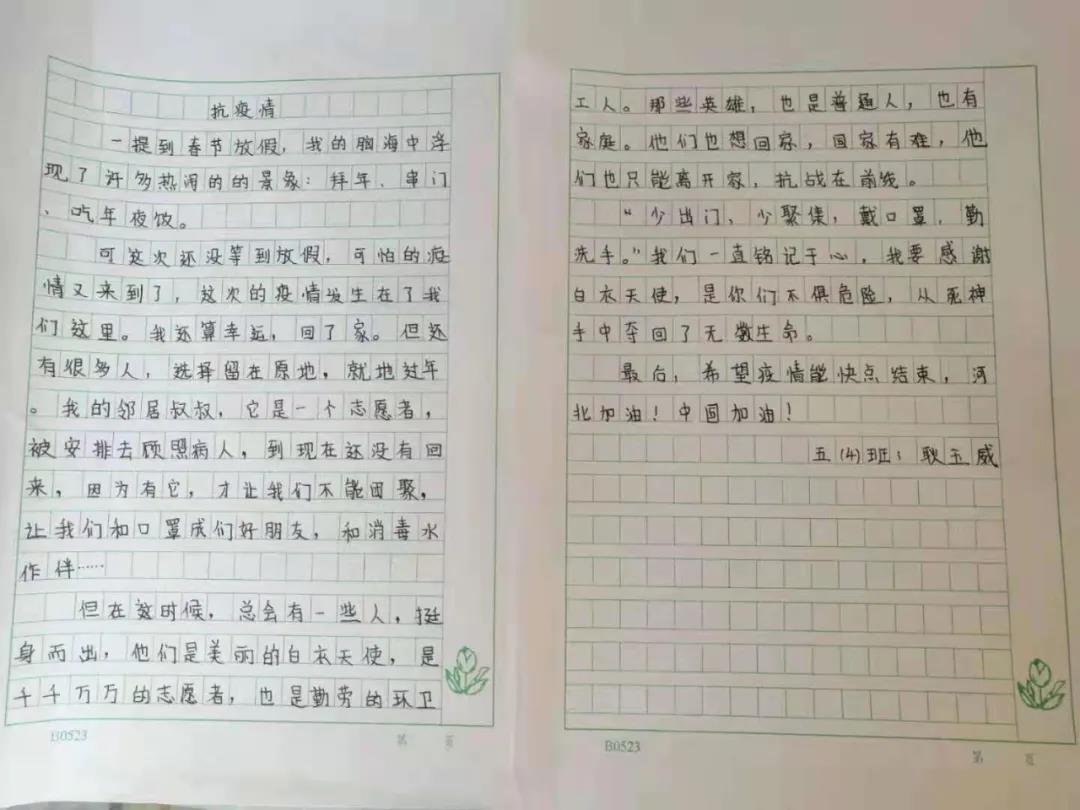 抗疫情
一提到春节放假，我的脑海中浮
现了许多热闹的的景象：拜年、串门
、吃年夜饭。
可这次还没等到放假，可怕的疫
情又来到了，这次的疫情发生在了我
们这里。我还算幸运，回了家。但还
有很多人，选择留在原地，就地过年
。我的邻居叔叔，它是一个志愿者，
被安排去顾照病人，到现在还没有回
来，因为有它，才让我们不能团聚，
让我们和口罩成们好朋友，和消毒水
作伴……
但在这时候，总会有一些人，挺
身而出，他们是美丽的白衣天使，是
千千万万的志愿者，也是勤劳的环卫
B0523
第 页
工人。那些英雄，也是普通人，也有
家庭。他们也想回家，国家有难，他
们也只能离开家，抗战在前线。
“少出门，少聚集，戴口罩，勤
洗手。”我们一直铭记于心，我要感谢
白衣天使，是你们不俱危险，从死神
手中夺回了无数生命。
最后，希望疫情能快点结束，河
北加油！中国加油！
五(4)班：耿玉威
B0523
第 页